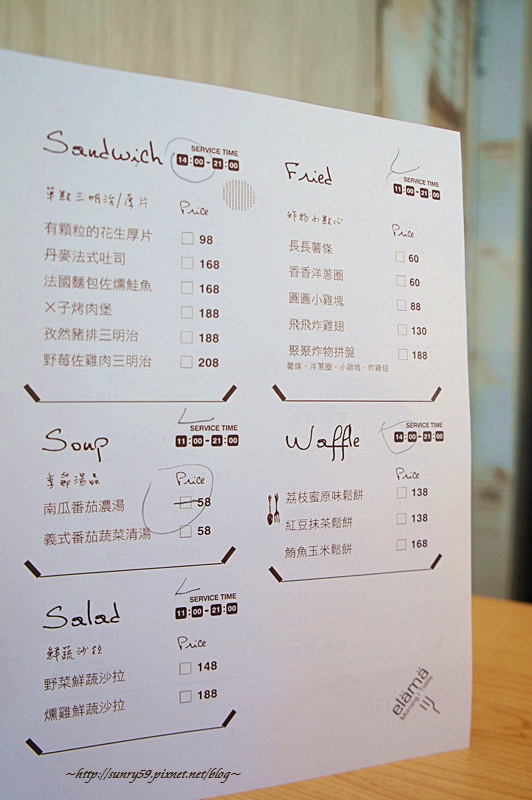 Sandwich
SERVICE TIME
14:00-21:00
單點三明治/厚片
Price
有顆粒的花生厚片 98
丹麥法式吐司 168
法國麵包佐燻鮭魚 168
X子烤肉堡 188
孜然豬排三明治 188
野莓佐雞肉三明治 208
Soup
SERVICE TIME
11:00-21:00
季節湯品
Price
南瓜番茄濃湯 58
義式番茄蔬菜清湯 58
Salad
SERVICE TIME
11:00-21:00
鮮蔬沙拉
Price
野菜鮮蔬沙拉 148
燻雞鮮蔬沙拉 188
Fried
SERVICE TIME
11:00-21:00
炸物小點心
Price
長長薯條 60
香香洋蔥圈 60
圓圓小雞塊 88
飛飛炸雞翅 130
聚聚炸物拼盤 188
薯條、洋蔥圈、小雞塊、炸雞翅
Waffle
SERVICE TIME
14:00-21:00
Price
荔枝蜜原味鬆餅 138
紅豆抹茶鬆餅 138
鮪魚玉米鬆餅 168
elämä
Morning · Today
~http://sunry59.pixnet.net/blog~